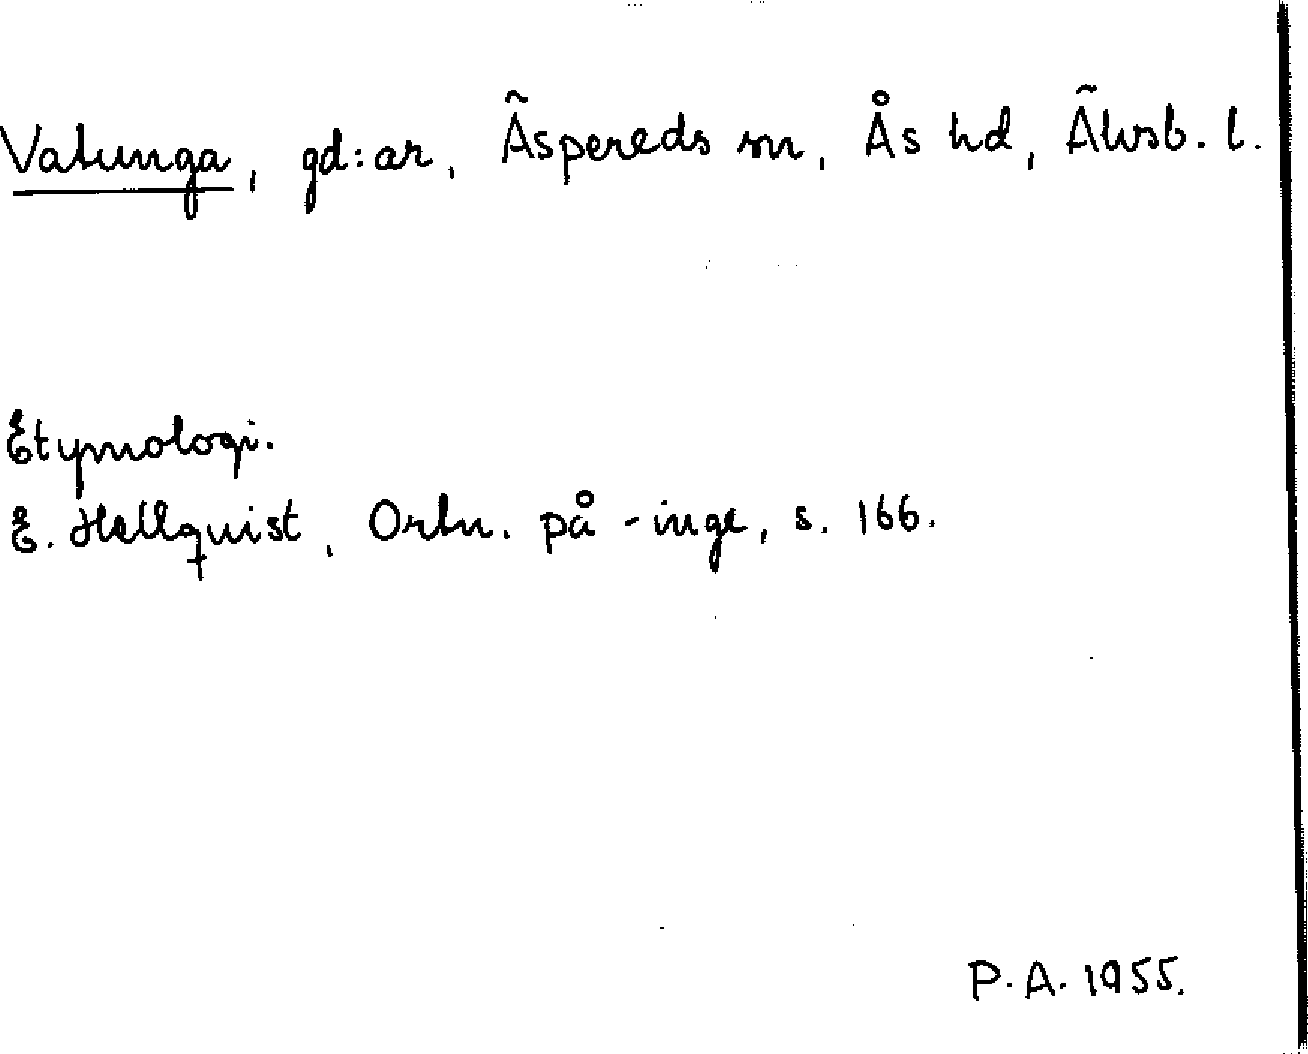 Vatunga, gd:ar, Äspereds sn, Ås hd, Älvsb. l.
Etymologi.
E. Hellquist, Ortn. på -inge, s. 166.
P.A. 1955.